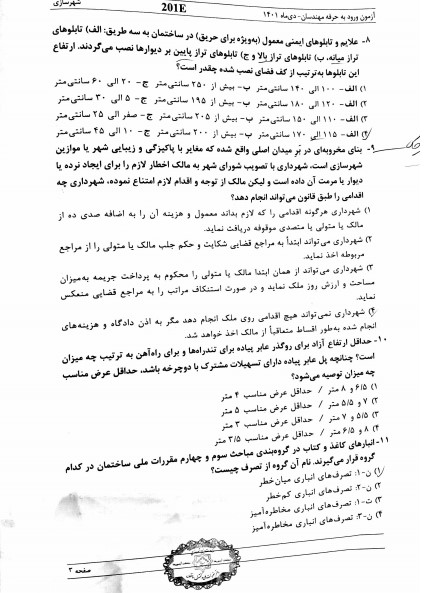 آزمون ورود به حرفه مهندسان- دی‌ماه ۱۴۰۱
201E
شهرسازی
۸- علایم و تابلوهای ایمنی معمول (به‌ویژه برای حریق) در ساختمان به سه طریق: الف) تابلوهای
تراز میانه، ب) تابلوهای تراز بالا و ج) تابلوهای تراز پایین بر دیوارها نصب می‌گردند. ارتفاع
این تابلوها به‌ترتیب از کف فضای نصب شده چقدر است؟
۱) الف- ۱۰۰ الی ۱۴۰ سانتی‌متر ب- بیش از ۲۵۰ سانتی‌متر ج- ۲۰ الی ۶۰ سانتی‌متر
۲) الف- ۱۲۰ الی ۱۸۰ سانتی‌متر ب- بیش از ۱۹۵ سانتی‌متر ج- ۵ الی ۳۰ سانتی‌متر
۳) الف- ۱۱۰ الی ۱۵۰ سانتی‌متر ب- بیش از ۲۰۵ سانتی‌متر ج- صفر الی ۲۵ سانتی‌متر
۴) الف- ۱۱۵ الی ۱۷۰ سانتی‌متر ب- بیش از ۲۰۰ سانتی‌متر ج- ۱۰ الی ۴۵ سانتی‌متر
۹- بنای مخروبه‌ای در بَر میدان اصلی واقع شده که مغایر با پاکیزگی و زیبایی شهر یا موازین
شهرسازی است. شهرداری با تصویب شورای شهر به مالک اخطار لازم را برای ایجاد نرده یا
دیوار یا مرمت آن داده است و لیکن مالک از توجه و اقدام لازم امتناع نموده، شهرداری چه
اقدامی را طبق قانون می‌تواند انجام دهد؟
۱) شهرداری هرگونه اقدامی را که لازم بداند معمول و هزینه آن را به اضافه صدی ده از
مالک یا متولی یا متصدی موقوفه دریافت نماید.
۲) شهرداری می‌تواند ابتدأ به مراجع قضایی شکایت و حکم جلب مالک یا متولی را از مراجع
مربوطه اخذ نماید.
۳) شهرداری می‌تواند از همان ابتدا مالک یا متولی را محکوم به پرداخت جریمه به‌میزان
مساحت و ارزش روز ملک نماید و در صورت استنکاف مراتب را به مراجع قضایی منعکس
نماید.
۴) شهرداری نمی‌تواند هیچ اقدامی روی ملک انجام دهد مگر به اذن دادگاه و هزینه‌های
انجام شده به‌طور اقساط متعاقباً از مالک اخذ خواهد شد.
۱۰- حداقل ارتفاع آزاد برای روگذر عابر پیاده برای تندراه‌ها و برای راه‌آهن به ترتیب چه میزان
است؟ چنانچه پل عابر پیاده دارای تسهیلات مشترک با دوچرخه باشد، حداقل عرض مناسب
چه میزان توصیه می‌شود؟
۱) ۶/۵ و ۸ متر / حداقل عرض مناسب ۴ متر
۲) ۷ و ۵/۵ متر / حداقل عرض مناسب ۵ متر
۳) ۵/۵ و ۷ متر / حداقل عرض مناسب ۳ متر
۴) ۸ و ۶/۵ متر / حداقل عرض مناسب ۳/۵ متر
۱۱- انبارهای کاغذ و کتاب در گروه‌بندی مباحث سوم و چهارم مقررات ملی ساختمان در کدام
گروه قرار می‌گیرند. نام آن گروه از تصرف چیست؟
۱) ن-۱: تصرف‌های انباری میان‌خطر
۲) ن-۲: تصرف‌های انباری کم‌خطر
۳) ت-۱: تصرف‌های انباری مخاطره‌آمیز
۴) ن-۳: تصرف‌های انباری مخاطره‌آمیز
صفحه ۲